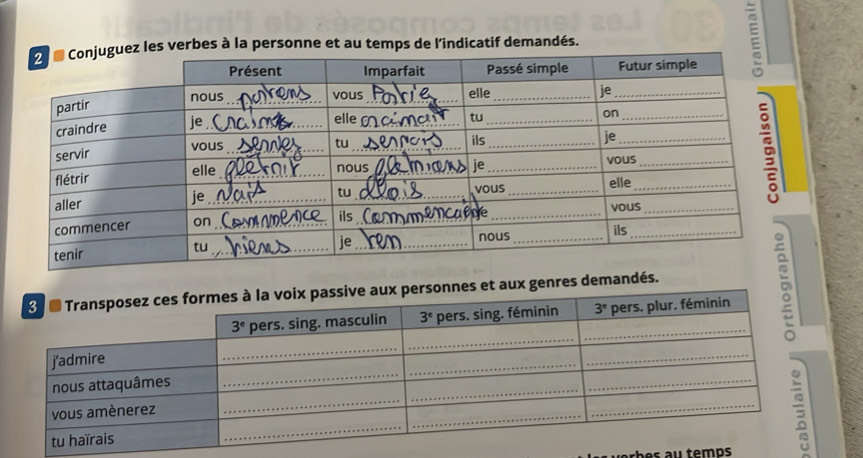 Grammair
2 Conjuguez les verbes à la personne et au temps de l'indicatif demandés.
Présent Imparfait Passé simple Futur simple
partir nous vous elle je
craindre je elle tu on
servir vous tu servais ils je
flétrir elle flétrir nous je vous
aller je vais tu allais vous elle
commencer on commence ils vous
tenir tu tiens je nous ils
Conjugaison
3 Transposez ces formes à la voix passive aux personnes et aux genres demandés.
3e pers. sing. masculin 3e pers. sing. féminin 3e pers. plur. féminin
j'admire
nous attaquâmes
vous amènerez
tu haïrais
Orthographe
cabulaire
verbes au temps